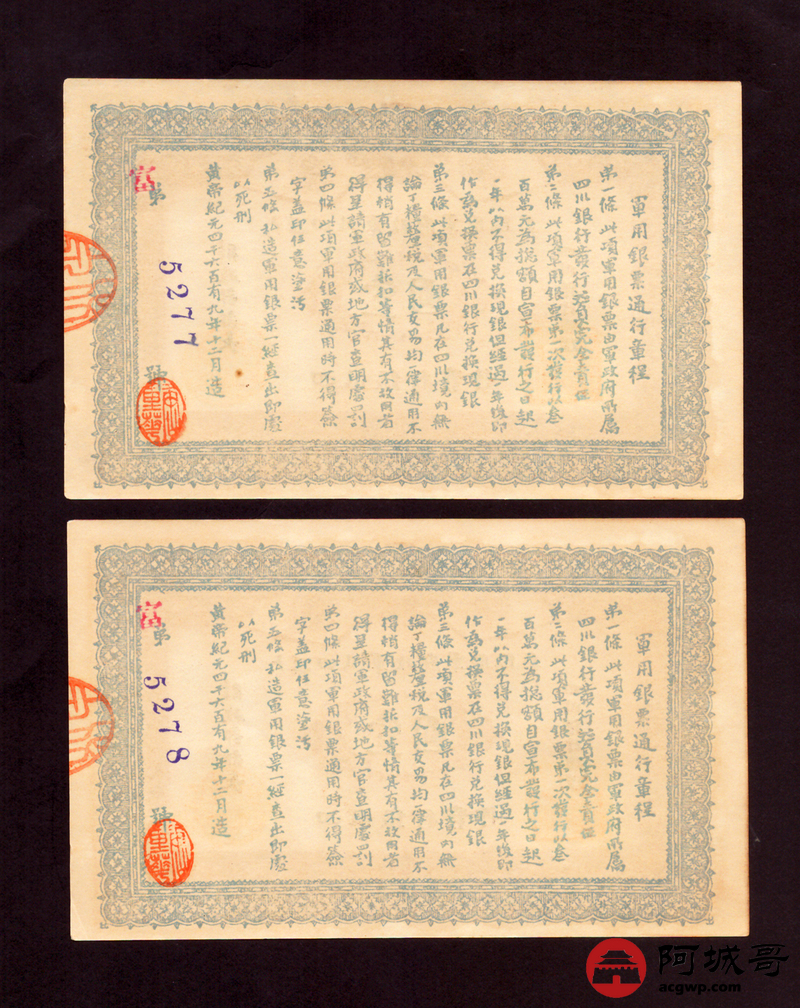 軍用銀票通行章程
第一條此項軍用銀票由軍政府所屬
四川銀行發行並負完全責任
第二條此項軍用銀票第一次發行以叁
百萬元為總額自宣布發行之日起
一年以內不得兌換現銀但經過一年後即
作為兌換票在四川銀行兌換現銀
第三條此項軍用銀票凡在四川境內無
論丁糧釐稅及人民交易均一律通用不
得稍有留難折扣等情其有不收用者
得呈請軍政府或地方官查明處罰
第四條此項軍用銀票通用時不得簽
字蓋印任意塗污
第五條私造軍用銀票一經查出即處
以死刑
黃帝紀元四千六百有九年十二月造
富
第 5277 號
軍用銀票通行章程
第一條此項軍用銀票由軍政府所屬
四川銀行發行並負完全責任
第二條此項軍用銀票第一次發行以叁
百萬元為總額自宣布發行之日起
一年以內不得兌換現銀但經過一年後即
作為兌換票在四川銀行兌換現銀
第三條此項軍用銀票凡在四川境內無
論丁糧釐稅及人民交易均一律通用不
得稍有留難折扣等情其有不收用者
得呈請軍政府或地方官查明處罰
第四條此項軍用銀票通用時不得簽
字蓋印任意塗污
第五條私造軍用銀票一經查出即處
以死刑
黃帝紀元四千六百有九年十二月造
富
第 5278 號
阿城哥
acgwp.com